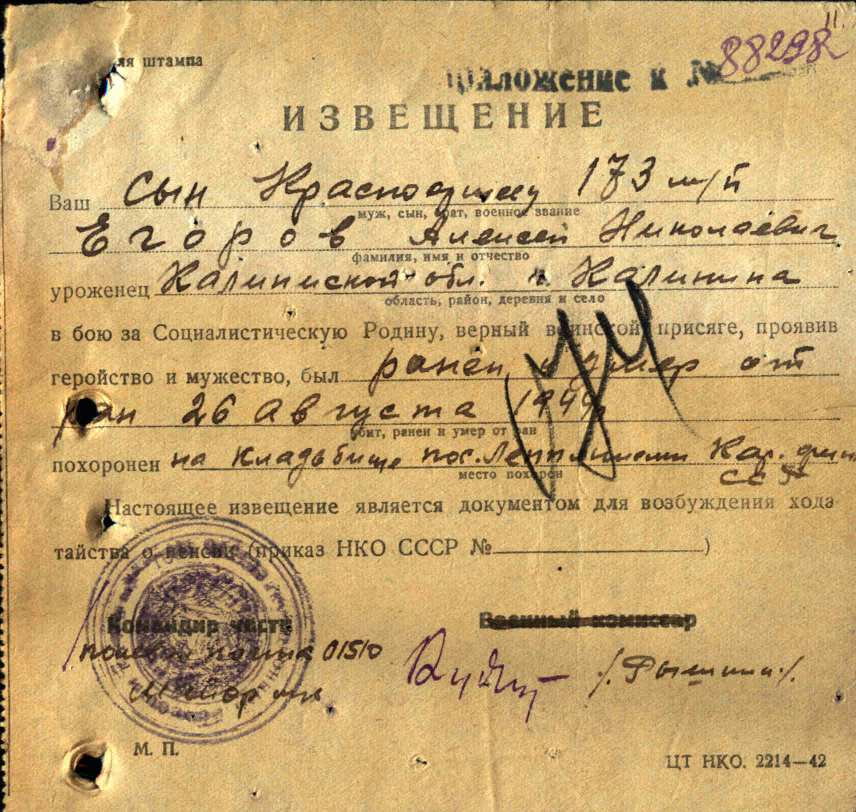 11.
ля штампа
Приложение к № 88298
ИЗВЕЩЕНИЕ
Ваш сын Красноармеец 173 м/п
муж, сын, брат, военное звание
Егоров Алексей Николаевич
фамилия, имя и отчество
уроженец Калининской обл. г. Калинина
область, район, деревня и село
в бою за Социалистическую Родину, верный воинской присяге, проявив
геройство и мужество, был ранен и умер от
ран 26 августа 1944
убит, ранен и умер от ран
похоронен на кладбище пос. Кар. фин
место похорон
ССР
Настоящее извещение является документом для возбуждения хода-
тайства о пенсии (приказ НКО СССР № )
Командир части
Военный комиссар
полевая почта 01510
майор
М. П.
ЦТ НКО. 2214—42